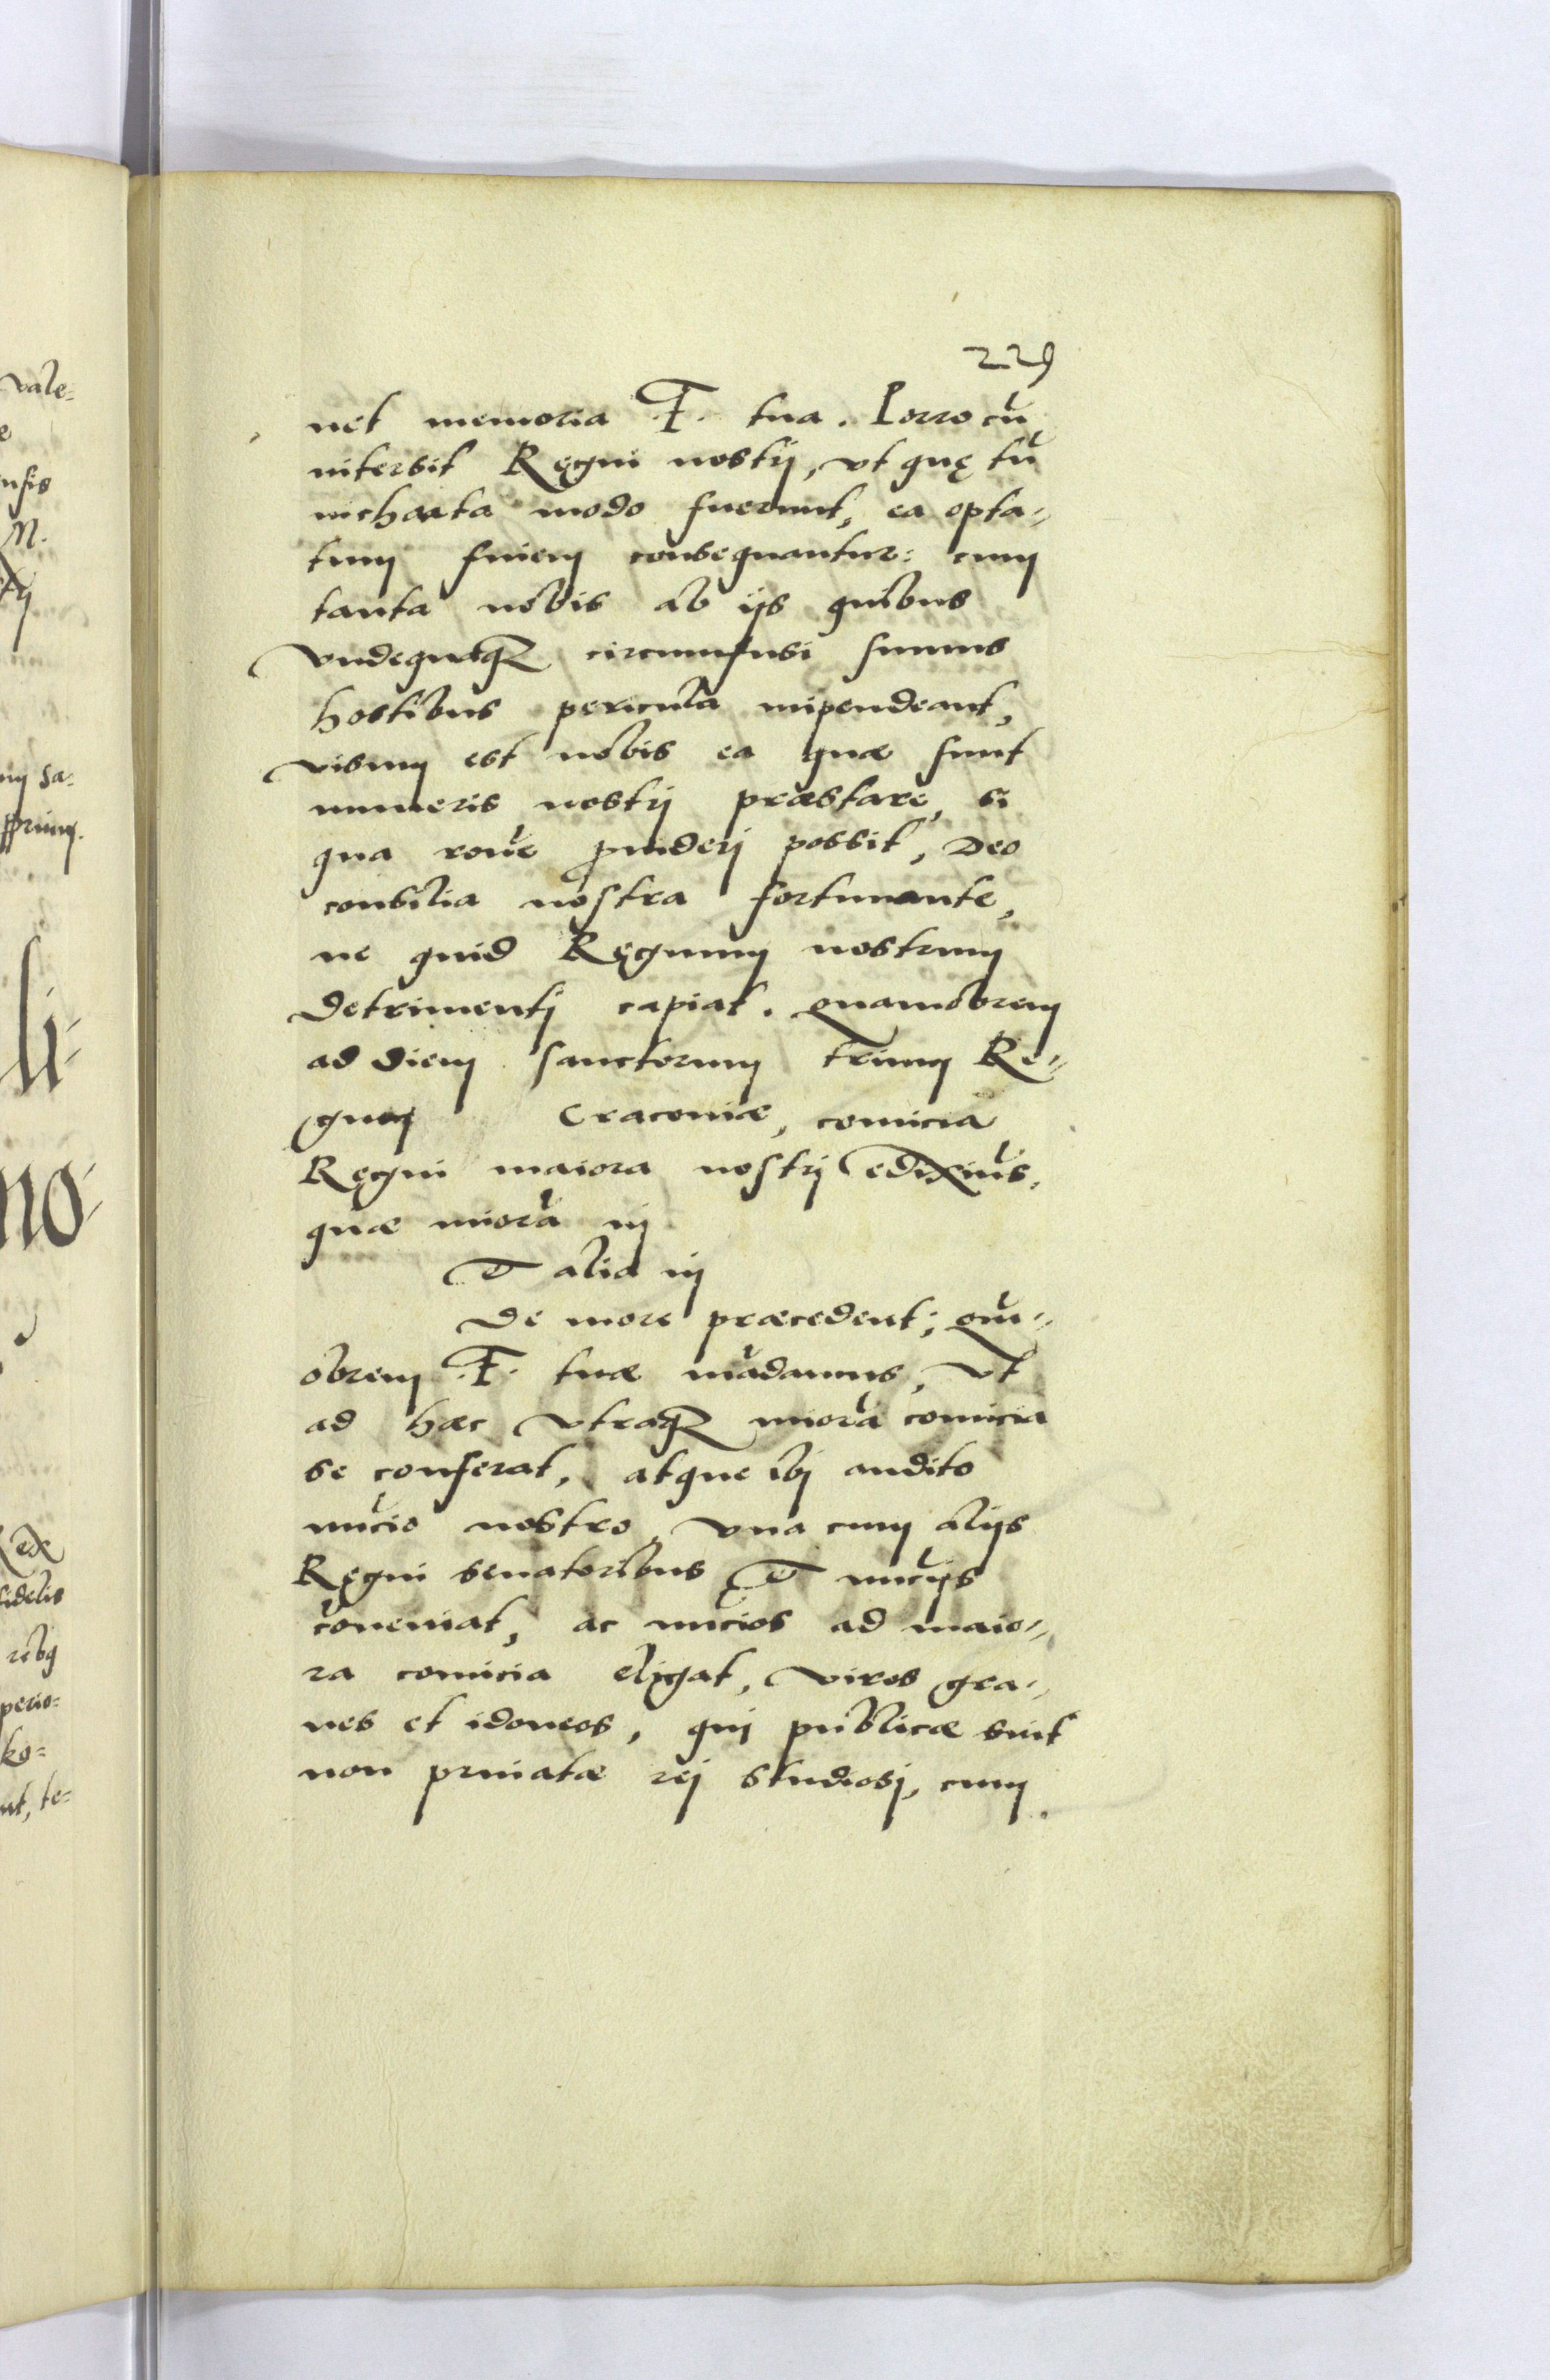 229
net memoria .F. tua. Porro cũ
intersit Ręgni nostrj, vt quę tũ
inchoata modo fuerunt, ea opta-
tum finem consequantur: cum
tanta nobis ab ijs quibus
vndequaq circumfusi sumus
hostibus pericula impendeant,
visum est nobis ea quæ sunt
muneris nostrj præstare, si
qua rõne puiderj possit, Deo
consilia nostra fortunante,
ne quid Ręgnum nostrum
detrimentj capiat. Quamobrem
ad diem sanctorum trium Re-
gum Cracouiæ, comicia
Ręgni maiora nostrj edixiũs,
quæ miora in
Et alia in
de more præcedent; Quã-
obrem .F. tuæ mãdamus, vt
ad hæc vtraq miora comicia
se conferat, atque ibj audito
nũcio nostro, vna cum alijs
Ręgni senatoribus Et nũcijs
cõueniat, ac nũcios ad maio-
ra comicia eligat, viros gra-
ues et idoneos, quj publicæ sint
non priuatæ rej studiosj, cum
vale-
e
M.
li-
no-
Rex
fidelis
perio-
ko-
te-